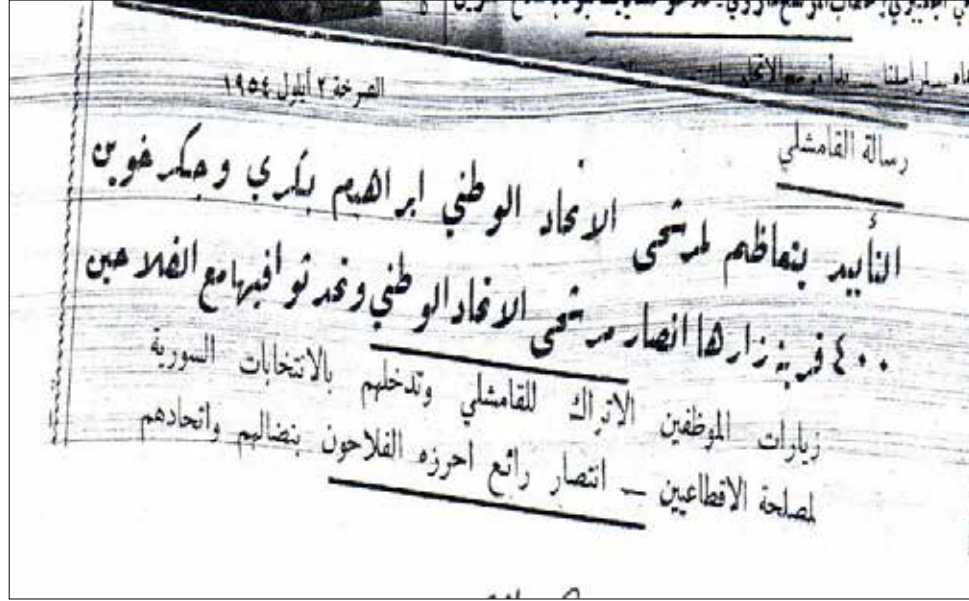 الصرخة ٢ أيلول ١٩٥٤
رسالة القامشلي
التأييد يتعاظم لمرشحي الاتحاد الوطني ابراهيم بكري وجكرخوين
٤٠٠ قرية زارها انصار مرشحي الاتحاد الوطني وتحدثوا فيها مع الفلاحين
زيارات الموظفين الاتراك للقامشلي وتدخلهم بالانتخابات السورية
لمصلحة الاقطاعيين — انتصار رائع احرزه الفلاحون بنضالهم واتحادهم